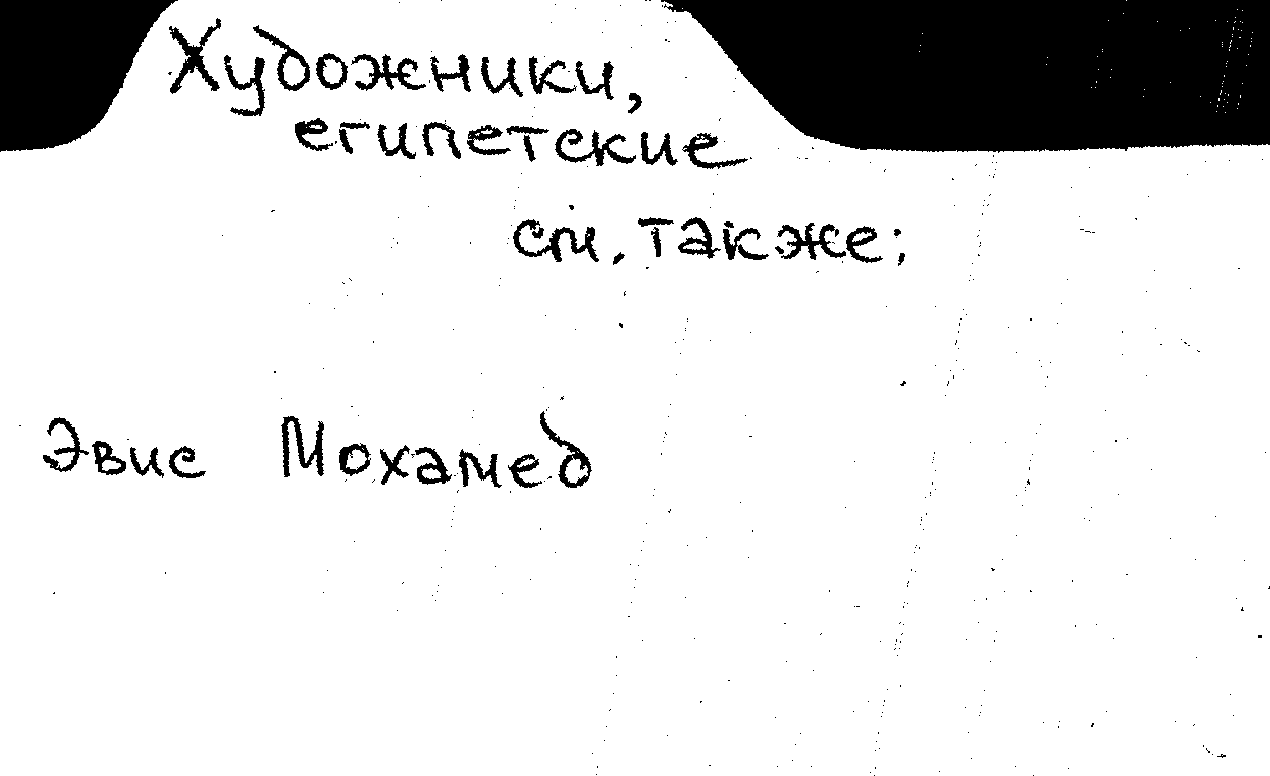 Художники,
египетские
см. также:
Эвис Мохамед